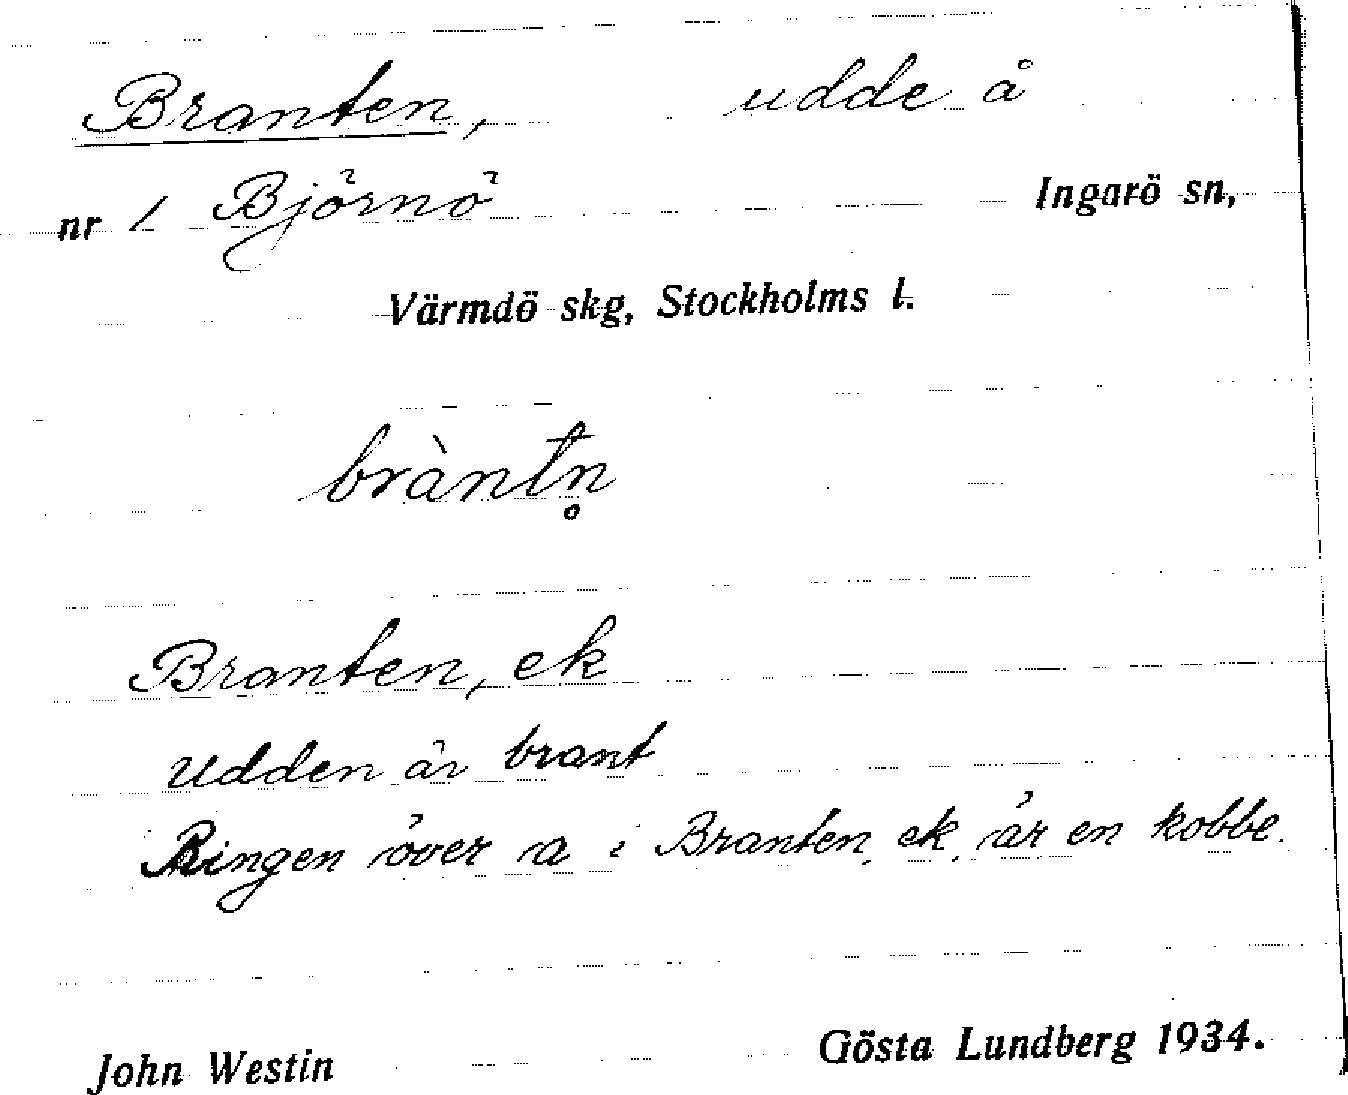 Branten, udde å
nr 1 Björnö Ingarö sn,
Värmdö skg, Stockholms l.
bràntn̥
Branten, ek
Udden är brant
Ringen över a i Branten, ek, är en kobbe.
John Westin Gösta Lundberg 1934.